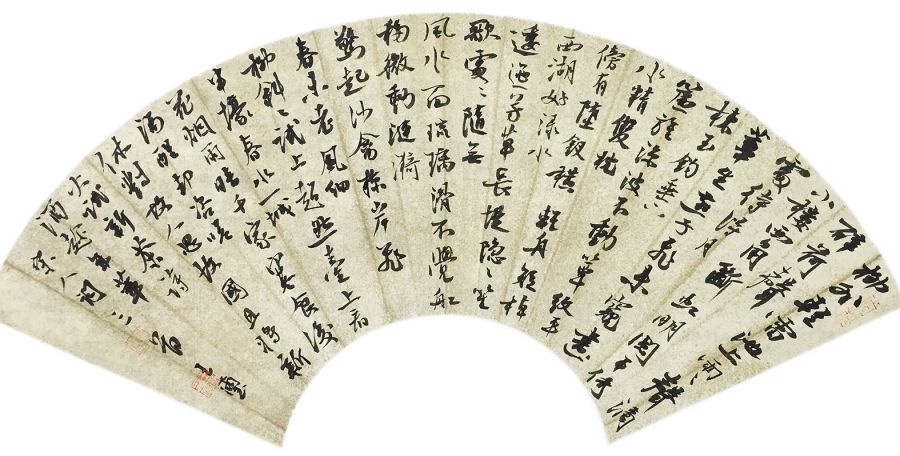 柳外輕雷池上雨〻聲滴
碎荷聲
小樓西角斷虹明闌干倚
處待得月
華生燕子飛來窺畫
棟玉鉤垂下
簾旌涼波不動簟紋平
水精雙枕
傍有墮釵横輕舟短棹
西湖好淥水
逶迤芳草長堤隱〻笙
歌處〻隨無
風水面琉璃滑不覺船
移微動漣漪
驚起沙禽掠岸飛
春未老風細
柳斜〻試上超然臺上看
半壕春水一城
花烟雨暗千家寒食後
酒醒却咨嗟
休對故人思故國且將新
火試新茶詩
酒趁年華